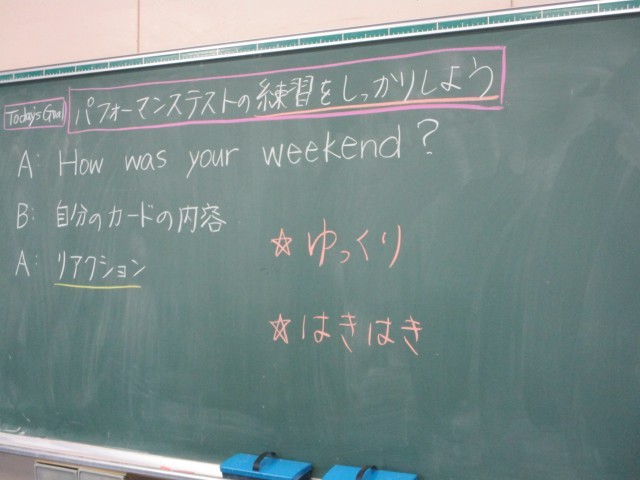 Today's Goal パフォーマンステストの練習をしっかりしよう
A: How was your weekend?
B: 自分のカードの内容
A: リアクション
☆ゆっくり
☆はきはき